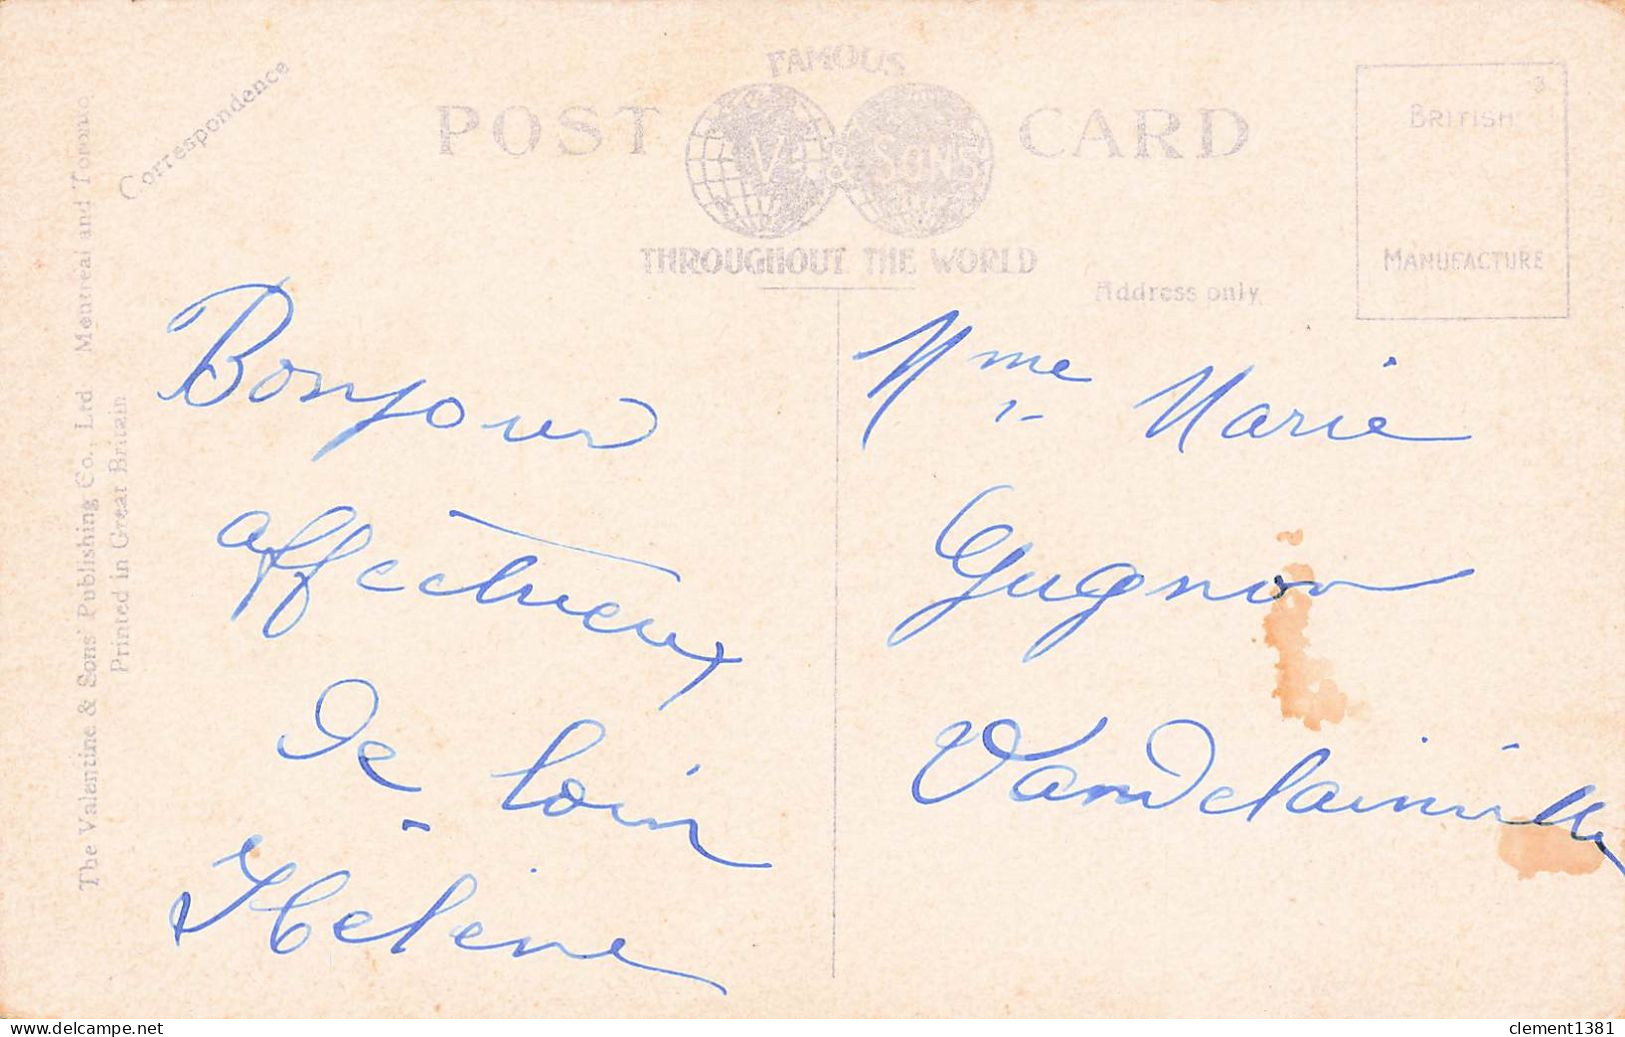 The Valentine & Sons' Publishing Co., Ltd Montreal and Toronto
Printed in Great Britain
Correspondence
FAMOUS
POST CARD
V. & SONS
THROUGHOUT THE WORLD
Address only
3
BRITISH
MANUFACTURE
Bonjour
affectueux
de loin
Helène
Mme Marie
Gugnon
Vandelainville
clement1381